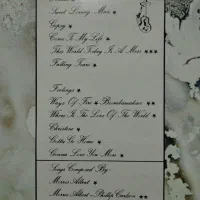 Sweet Loving Man *
Gypsy *
Come To My Life *
This World Today Is A Mess ***
Falling Tears *
Feelings *
Ways Of Fire - Bombardment **
Where Is The Love Of The World *
Christine *
Gotta Go Home *
Gonna Love You More *
Songs Composed By:
Morris Albert *
Morris Albert - Phillip Carlson **